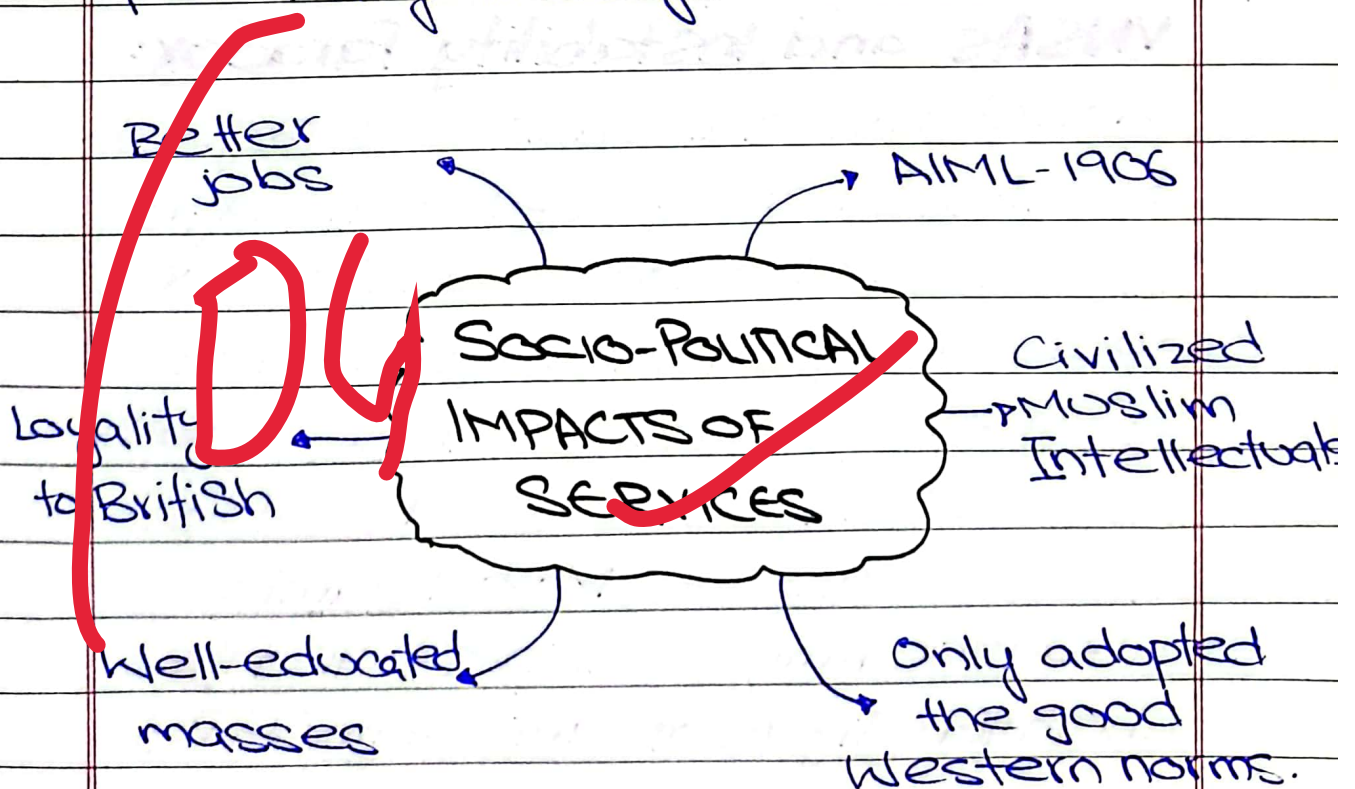 Better
jobs
AIML-1906
04
SOCIO-POLITICAL
IMPACTS OF
SERVICES
Civilized
Muslim
Intellectuals
Loyality
to British
Well-educated
masses
Only adopted
the good
Western norms.